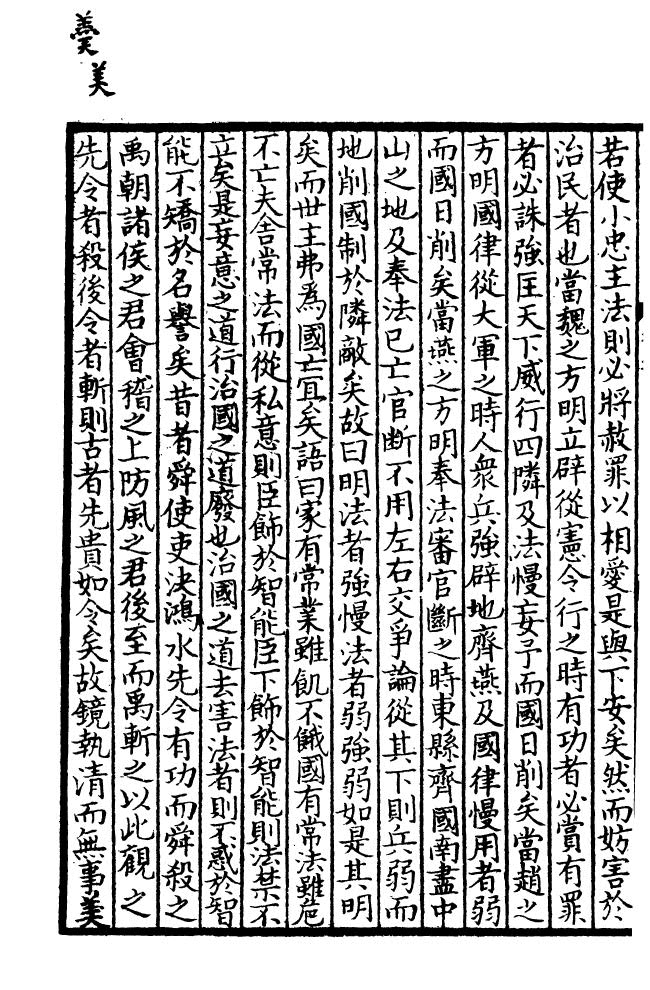 若使小忠主法則必將赦罪以相愛是與下安矣然而妨害於
治民者也當魏之方明立辟從憲令行之時有功者必賞有罪
者必誅強匡天下威行四隣及法慢妄予而國日削矣當趙之
方明國律從大軍之時人衆兵強辟地齊燕及國律慢用者弱
而國日削矣當燕之方明奉法審官斷之時東縣齊國南盡中
山之地及奉法已亡官斷不用左右交爭論從其下則兵弱而
地削國制於隣敵矣故曰明法者強慢法者弱強弱如是其明
矣而世主弗為國亡宜矣語曰家有常業雖飢不餓國有常法雖危
不亡夫舍常法而從私意則臣飾於智能臣下飾於智能則法禁不
立矣是妄意之道行治國之道廢也治國之道去害法者則不惑於智
能不矯於名譽矣昔者舜使吏決鴻水先令有功而舜殺之
禹朝諸侯之君會稽之上防風之君後至而禹斬之以此觀之
先令者殺後令者斬則古者先貴如令矣故鏡執清而無事美
羙
美